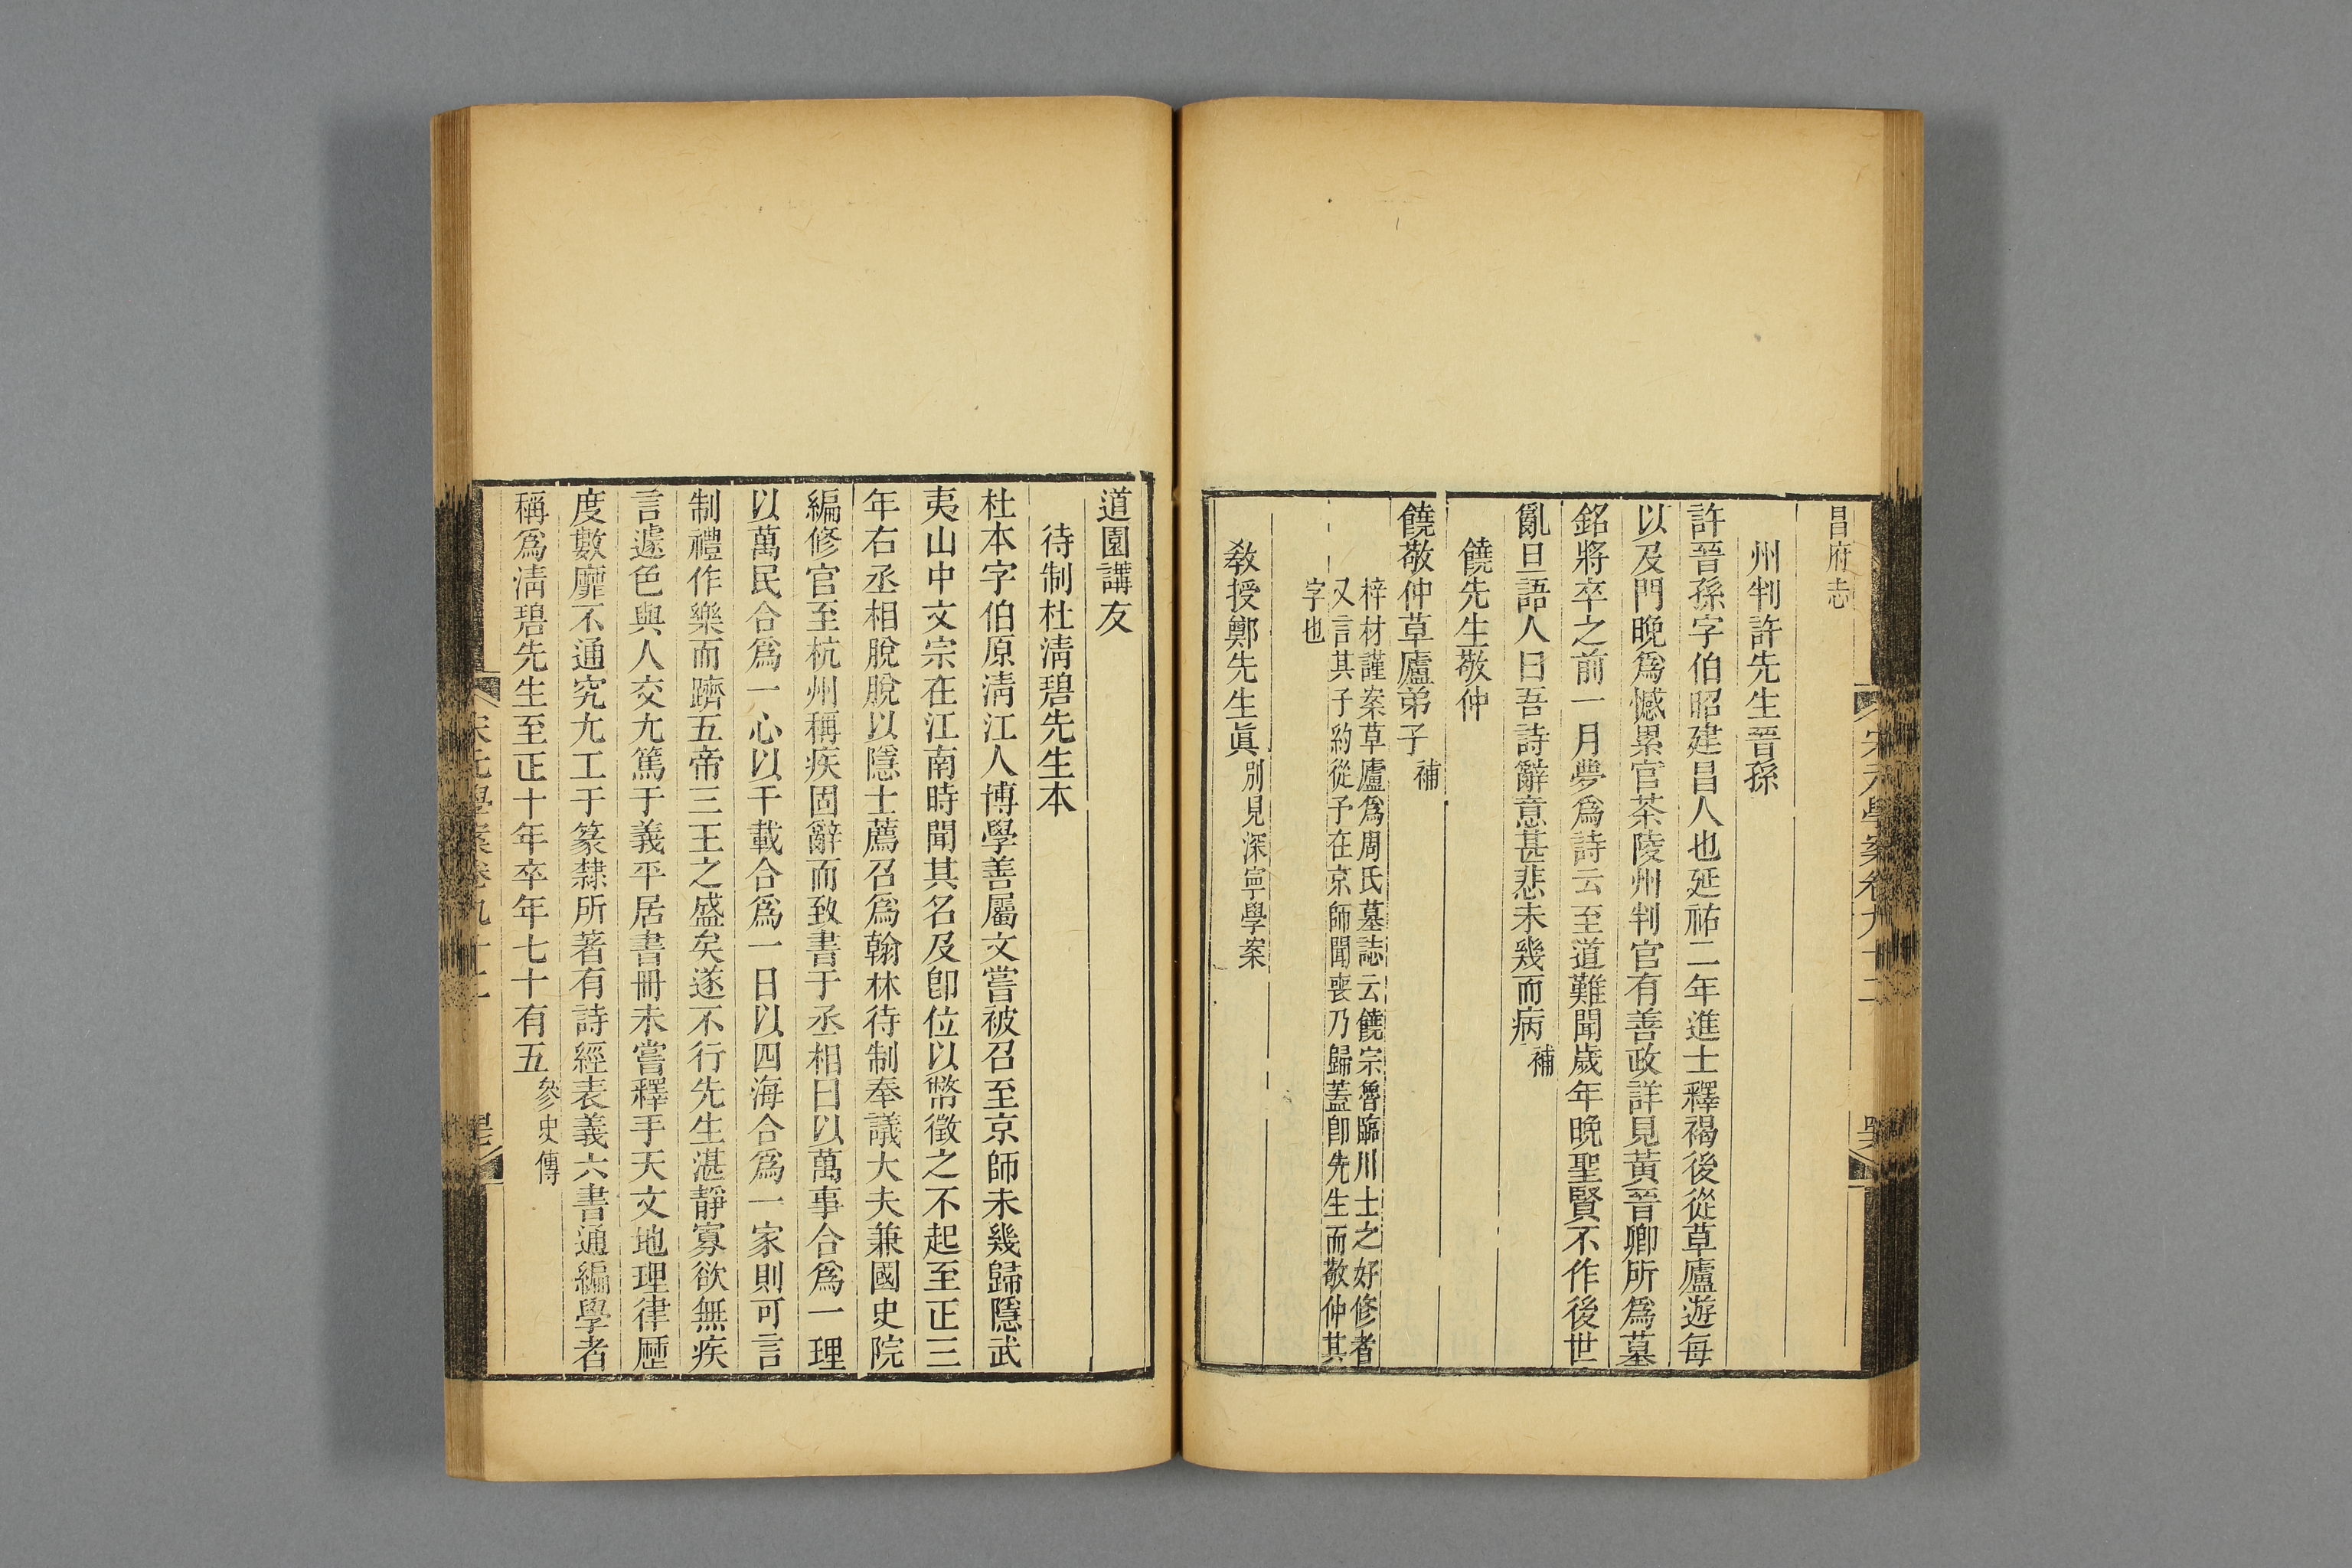 昌府志
州判許先生晉孫
許晉孫字伯昭建昌人也延祐二年進士釋褐後從草廬遊每
以及門晚爲憾累官茶陵州判官有善政詳見黃晉卿所爲墓
銘將卒之前一月夢爲詩云至道難聞歲年晚聖賢不作後世
亂旦語人曰吾詩辭意甚悲未幾而病補
饒先生敬仲
饒敬仲草廬弟子補
梓材謹案草廬爲周氏墓誌云饒宗魯臨川士之好修者
又言其子約從予在京師聞喪乃歸蓋卽先生而敬仲其
字也
教授鄭先生眞別見深寧學案
道園講友
待制杜清碧先生本
杜本字伯原清江人博學善屬文嘗被召至京師未幾歸隱武
夷山中文宗在江南時聞其名及卽位以幣徵之不起至正三
年右丞相脫脫以隱士薦召爲翰林待制奉議大夫兼國史院
編修官至杭州稱疾固辭而致書于丞相曰以萬事合爲一理
以萬民合爲一心以千載合爲一日以四海合爲一家則可言
制禮作樂而躋五帝三王之盛矣遂不行先生湛靜寡欲無疾
言遽色與人交尤篤于義平居書冊未嘗釋手天文地理律歷
度數靡不通究尤工于篆隸所著有詩經表義六書通編學者
稱爲清碧先生至正十年卒年七十有五參史傳
宋元學案卷九十二